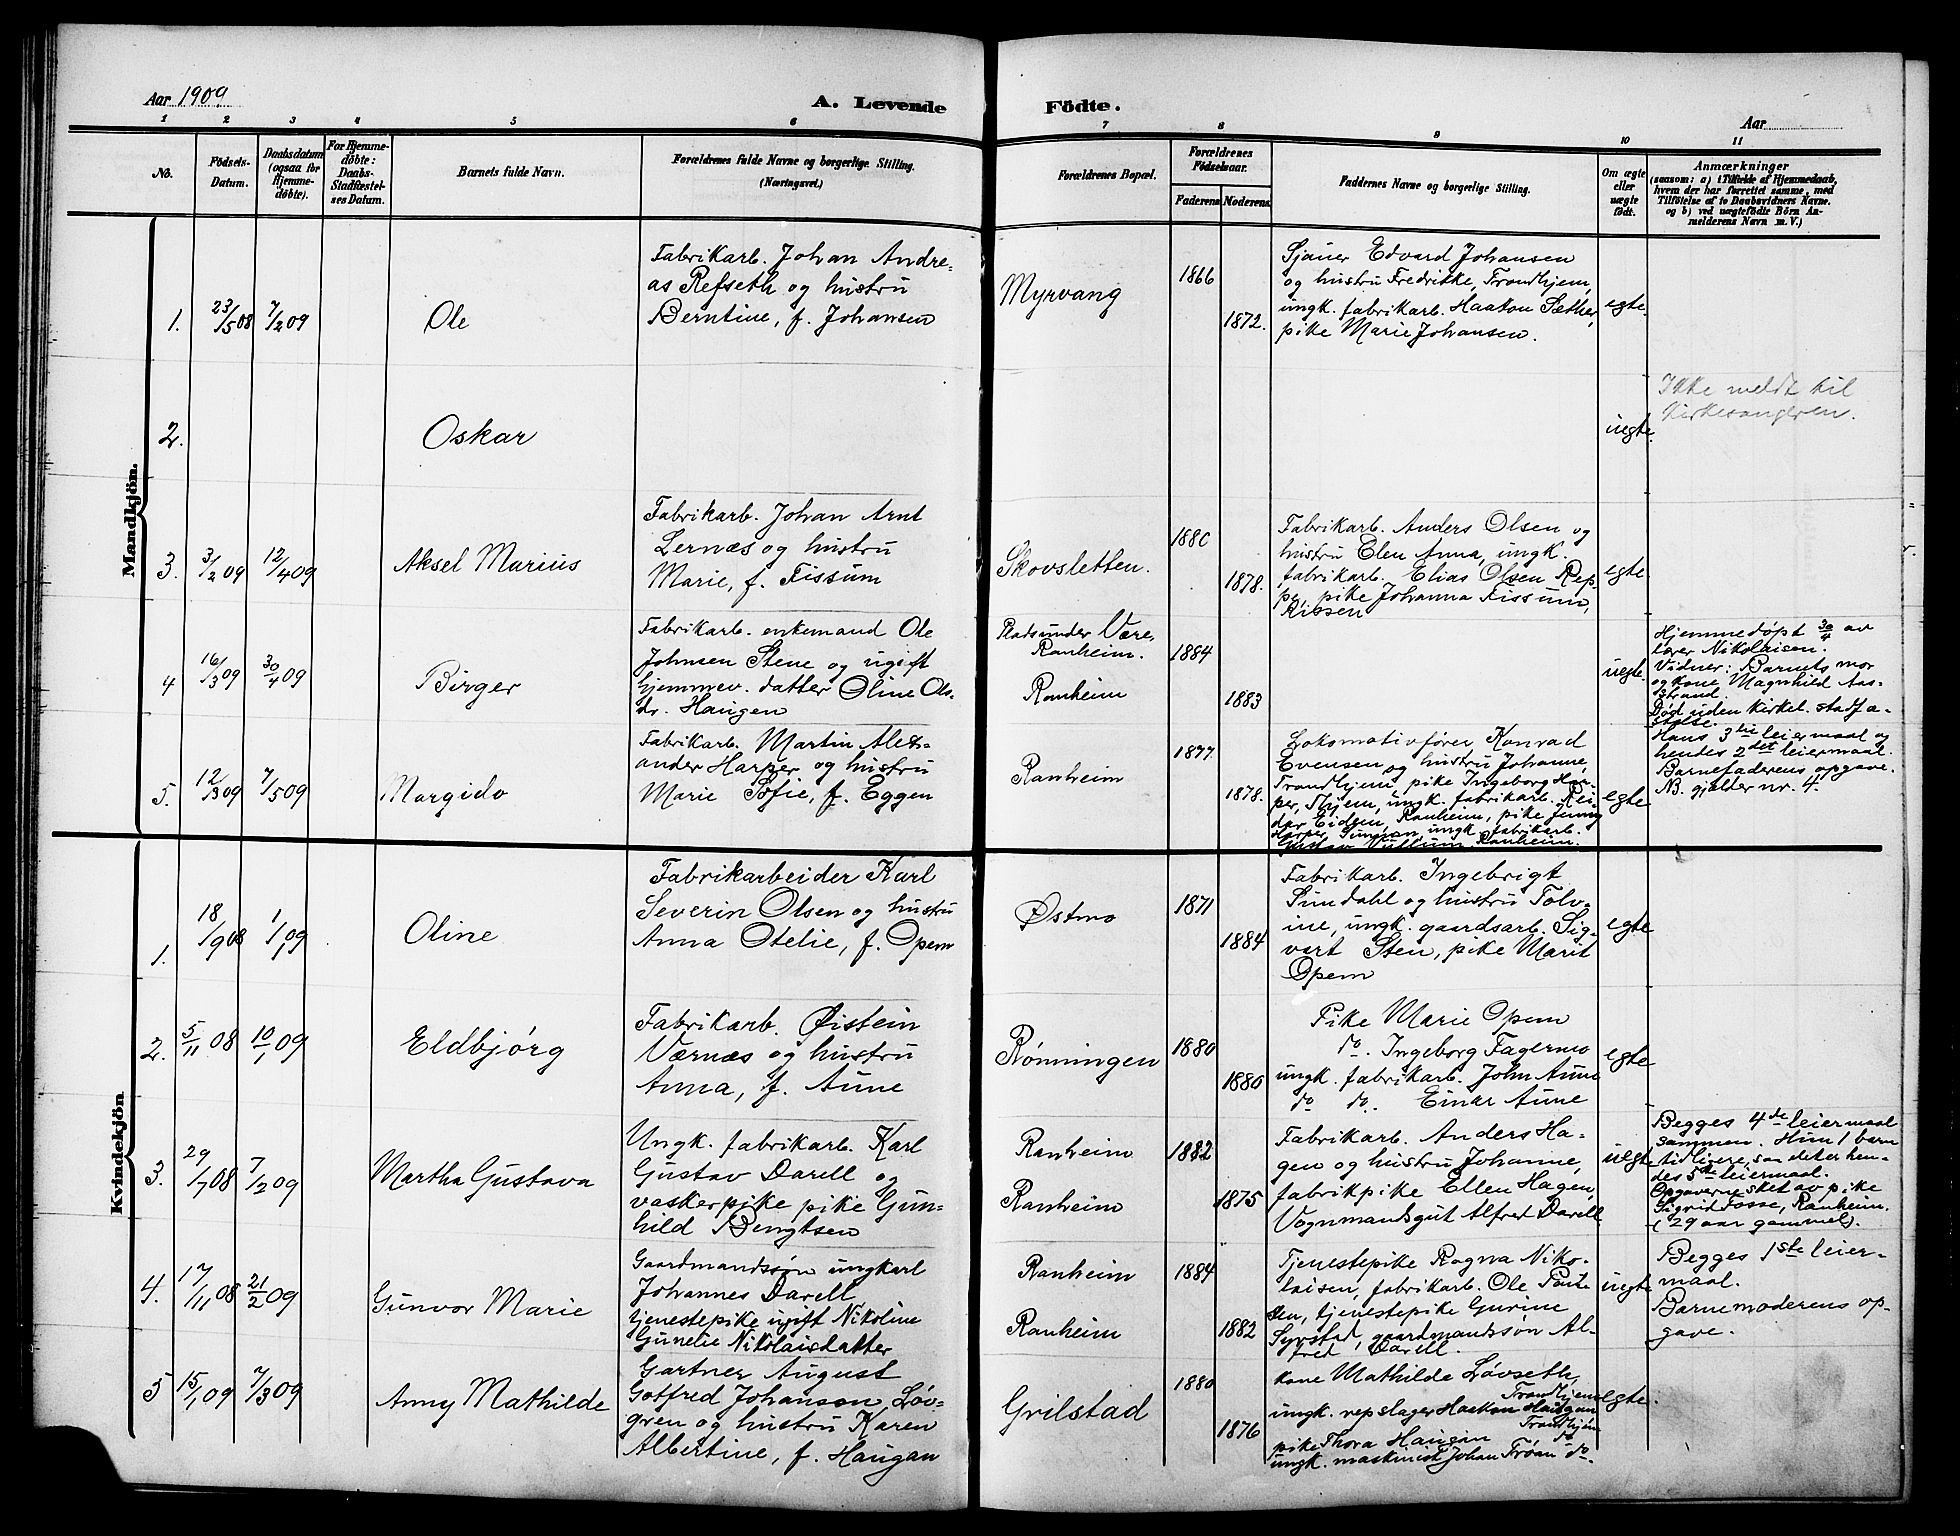 Aar 1909
A. Levende Födte.
Aar
1 2 3 4 5 6 7 8 9 10 11
No.
Födsels-
Datum.
Daabsdatum
(ogsaa for
Hjemme-
döbte).
For Hjemme-
döbte:
Daabs-
Stadfæstel-
ses Datum.
Barnets fulde Navn.
Forældrenes fulde Navne og borgerlige Stilling.
(Næringsvei.)
Forældrenes Bopæl.
Forældrenes
Födselsaar.
Faderens
Moderens
Faddernes Navne og borgerlige Stilling.
Om ægte
eller
uægte
födt.
Anmærkninger
(saasom: a) i Tilfælde af Hjemmedaab,
hvem der har forrettet samme, med
Tilföielse af to Daabsvidners Navne.
og b) ved uægtefödte Börn An-
melderens Navn m. V.)
Mandkjön.
1.
23/5 08
7/2 09
Ole
Fabrikarb. Johan Andre-
as Refseth og hustru
Berntine, f. Johansen
Myrvang
1866
1872.
Sjauer Edvard Johansen
og hustru Fredrikke, Trondhjem,
ungk. fabrikarb. Haakon Sæther,
pike Marie Johansen.
egte.
2.
Oskar
uegte.
Ikke meldt til
Kirkesangeren.
3.
3/2 09
12/4 09
Aksel Marius
Fabrikarb. Johan Arnt
Lernæs og hustru
Marie, f. Fissum
Skovsletten.
1880
1878.
Fabrikarb. Anders Olsen og
hustru Elen Anna, ungk.
fabrikarb. Elias Olsen Rep-
pe, pike Johanna Fissum,
Rissen
egte.
4
16/3 09
30/4 09
Birger
Fabrikarb. enkemand Ole
Johnsen Stene og ugift
hjemmev. datter Oline Ols-
dr. Haugen
Plads under Være,
Ranheim.
Ranheim
1884
1883
uegte.
Hjemmedøpt 30/4 av
lærer Nikolaisen.
Vidner: Barnets mor
og kone Magnhild Aas-
strand.
Død uden kirkel. stadfæ-
stelse.
Hans 3die leiermaal og
hendes 2det leiermaal.
Barnefaderens opgave.
NB. gjælder nr. 4.
5.
12/3 09
7/5 09
Margido
Fabrikarb. Martin Alex-
ander Harper og hustru
Marie Sofie, f. Eggen
Ranheim
1877
1878.
Lokomotivfører Konrad
Evensen og hustru Johanne,
Trondhjem, pike Ingeborg Har-
per, Thjem, ungk. fabrikarb. Rei-
dar Eidem, Ranheim, pike Jenny
Harper, ungk. fabrikarb.
Gustav Vullum, Ranheim.
egte
Kvindekjön
1.
18/9 08
1/1 09
Oline
Fabrikarbeider Karl
Severin Olsen og hustru
Anna Otelie, f. Opem
Østmo
1871
1884
Fabrikarb. Ingebrigt
Sundahl og hustru Tolv-
ine, ungk. gaardsarb. Sig-
vart Sten, pike Marit
Opem
egte
2.
5/11 08
10/1 09
Eldbjørg
Fabrikarb. Øistein
Værnæs og hustru
Anna, f. Aune
Rønningen
1880
1880
Pike Marie Opem
do. Ingeborg Fagermo
ungk. fabrikarb. John Aune
do do. Einar Aune
egte
3.
29/7 08
7/2 09
Martha Gustava
Ungk. fabrikarb. Karl
Gustav Darell og
vaskerpike pike Gun-
hild Bengtsen
Ranheim
Ranheim
1882
1875
Fabrikarb. Anders Ha-
gen og hustru Johanne,
fabrikpike Ellen Hagen,
Vognmandsgut Alfred Darell
uegte
Begges 4de leiermaal
sammen. Hun 1 barn
tidligere, saa det er hen-
des 5te leiermaal.
Opgaverne sket av pike
Sigrid Fosse, Ranheim.
(29 aar gammel).
4.
17/11 08
21/2 09
Gunvor Marie
Gaardmandssøn ungkarl
Johannes Darell
tjenestepike ugift Nikoline
Gunelie Nikolaisdatter
Ranheim
Ranheim
1884
1882
Tjenestepike Ragna Niko-
laisen, fabrikarb. Ole Poul-
sen, tjenestepike Gurine
Syrstad, gaardmandssøn Al-
fred Darell.
uegte
Begges 1ste leier-
maal.
Barnemoderens op-
gave.
5
15/1 09
7/3 09
Anny Mathilde
Gartner August
Gotfred Johanson Løv-
gren og hustru Karen
Albertine, f. Haugan
Grilstad
1880
1876
Kone Mathilde Løvseth,
Trondhjem
ungk. repslager Haakon Haugan
Trondhjem
pike Thora Haugan do
ungk. maskinist Johan Trøan do.
egte.